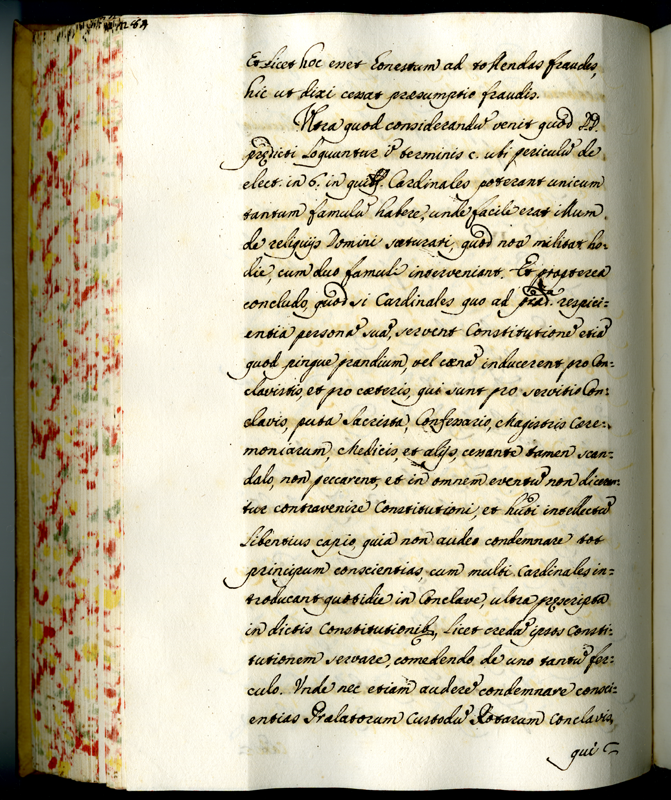 Et licet hoc esset honestum ad tollendas fraudes,
hic ut dixi cessat presumptio fraudis.
Ultra quod considerandũ venit quod DD.
prędicti loquuntur ĩ terminis c. ubi periculũ de
elect. in 6. in quib. Cardinales poterant unicum
tantum famulũ habere, unde facile erat illum
de reliquijs Domini saturati, quod non militat ho=
die, cum duo famuli interveniant. Et propterea
concludo, quod si Cardinales quo ad respici=
entia personã suã, servent Constitutionẽ etiã
quod pingue prandium, vel cænã inducerent pro Con=
clavistis, et pro cæteris, qui sunt pro servitio Con=
clavis, puta Sacrista, Confessario, Magistris Cere=
moniarum, Medicis, et alijs, cessante tamen scan=
dalo, non peccarent, et in omnem eventũ non diceren=
tur contravenire Constitutioni, et hũoi intellectũ
libentius capio, quia non audeo condemnare tot
principum conscientias, cum multi Cardinales in=
troducant quotidie in Conclave, ultra pręscripta
in dictis Constitutionib, licet credã ipsos Consti=
tutionem servare, comedendo de uno tantũ fer=
culo. Unde nec etiam auderẽ condemnare consci=
entias Prælatorum Custodũ Rotarum Conclavis,
qui